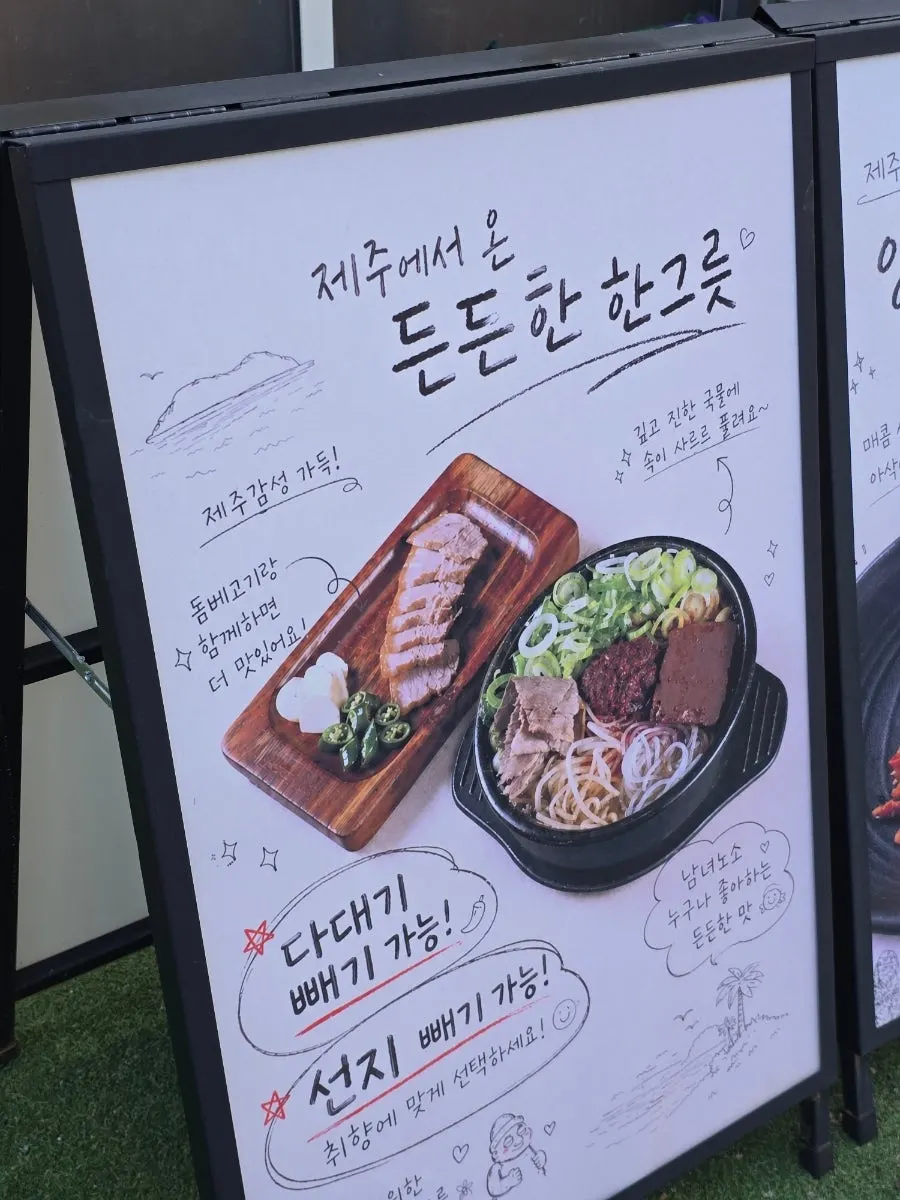 제주에서 온
든든한 한그릇
깊고 진한 국물에
속이 사르르 풀려요~
제주감성 가득!
돔베고기랑
함께하면
더 맛있어요!
남녀노소
누구나 좋아하는
든든한 맛
다대기
빼기 가능!
선지 빼기 가능!
취향에 맞게 선택하세요!
위한
제주
매콤